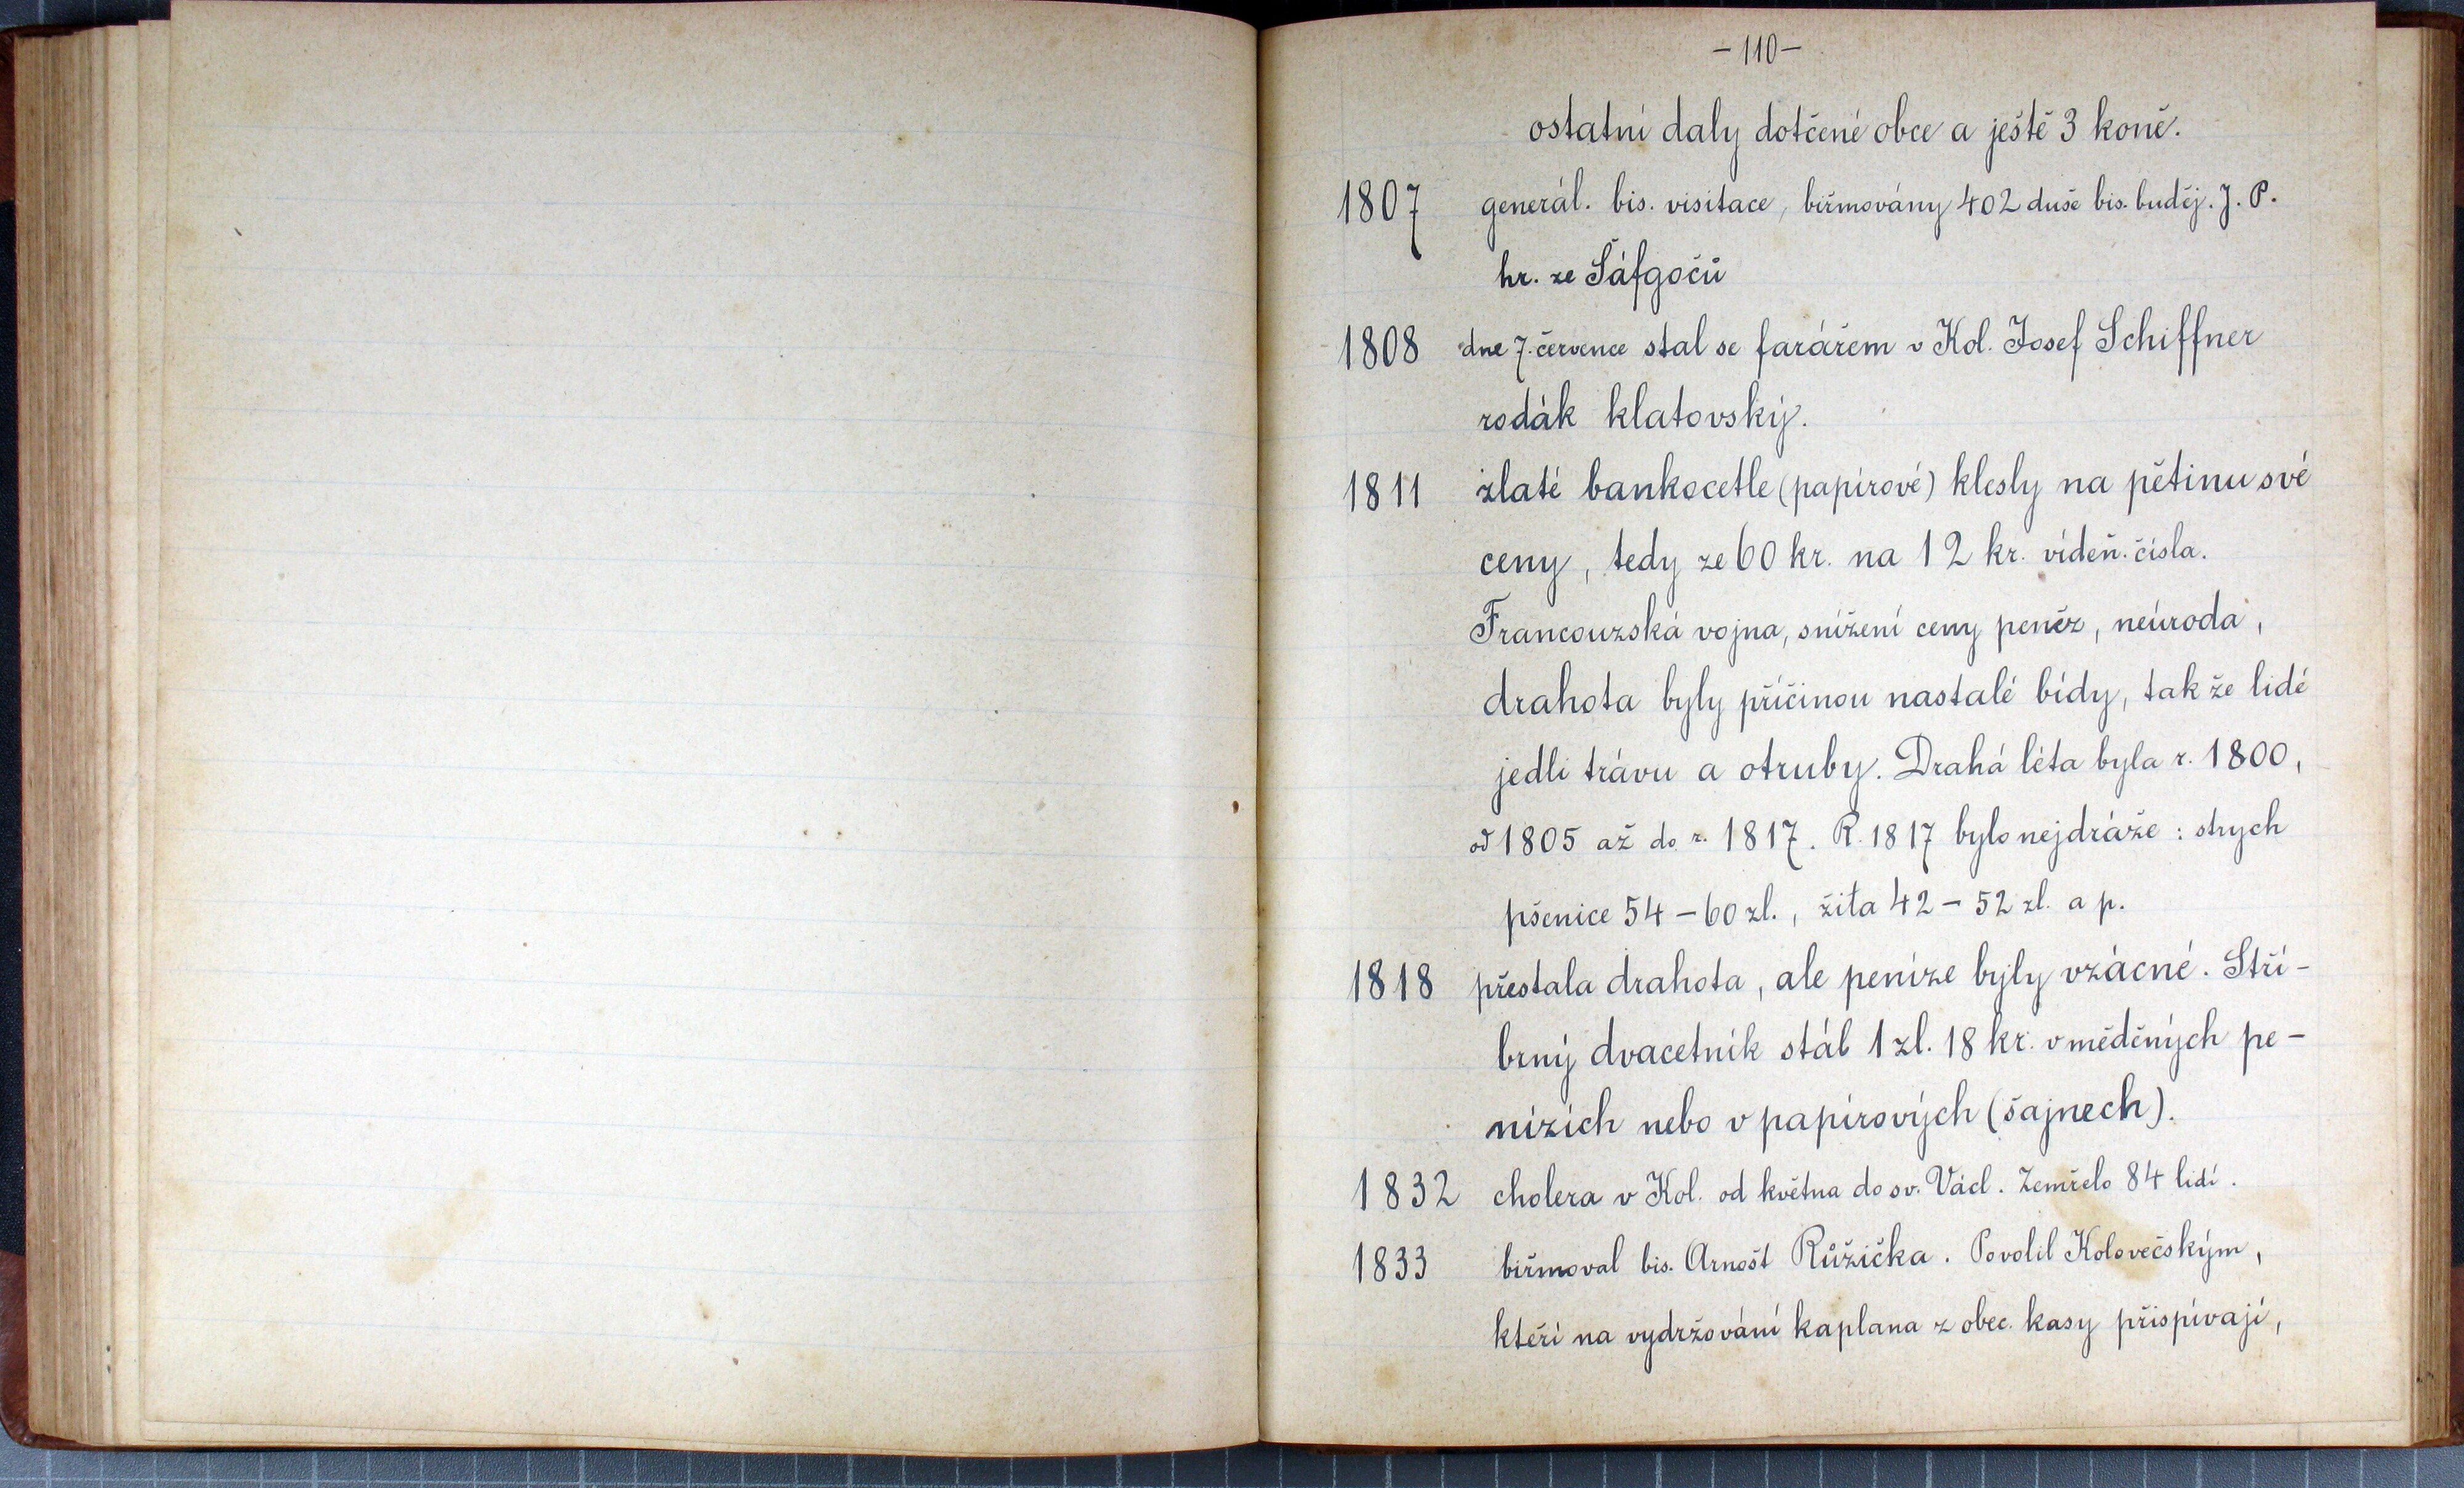 -110-
ostatní daly dotčené obce a ještě 3 koně.
1807 generál. bis. visitace, biřmovány 402 duše bis. buděj. J. P.
hr. ze Šáfgočů
1808 dne 7. července stal se farářem v Kol. Josef Schiffner
rodák klatovský.
1811 zlaté bankocetle (papírové) klesly na pětinu své
ceny, tedy ze 60 kr. na 12 kr. vídeň. čísla.
Francouzská vojna, snížení ceny peněz, neúroda,
drahota byly příčinou nastalé bídy, tak že lidé
jedli trávu a otruby. Drahá léta byla r. 1800,
od 1805 až do r. 1817. R. 1817 bylo nejdráže : strych
pšenice 54 - 60 zl., žita 42 - 52 zl. a p.
1818 přestala drahota, ale peníze byly vzácné. Stří-
brný dvacetník stál 1 zl. 18 kr. v měděných pe-
nízích nebo v papírových (šajnech).
1832 cholera v Kol. od května do sv. Václ. Zemřelo 84 lidí.
1833 biřmoval bis. Arnošt Růžička. Povolil Kolovečským,
kteří na vydržování kaplana z obec. kasy přispívají,